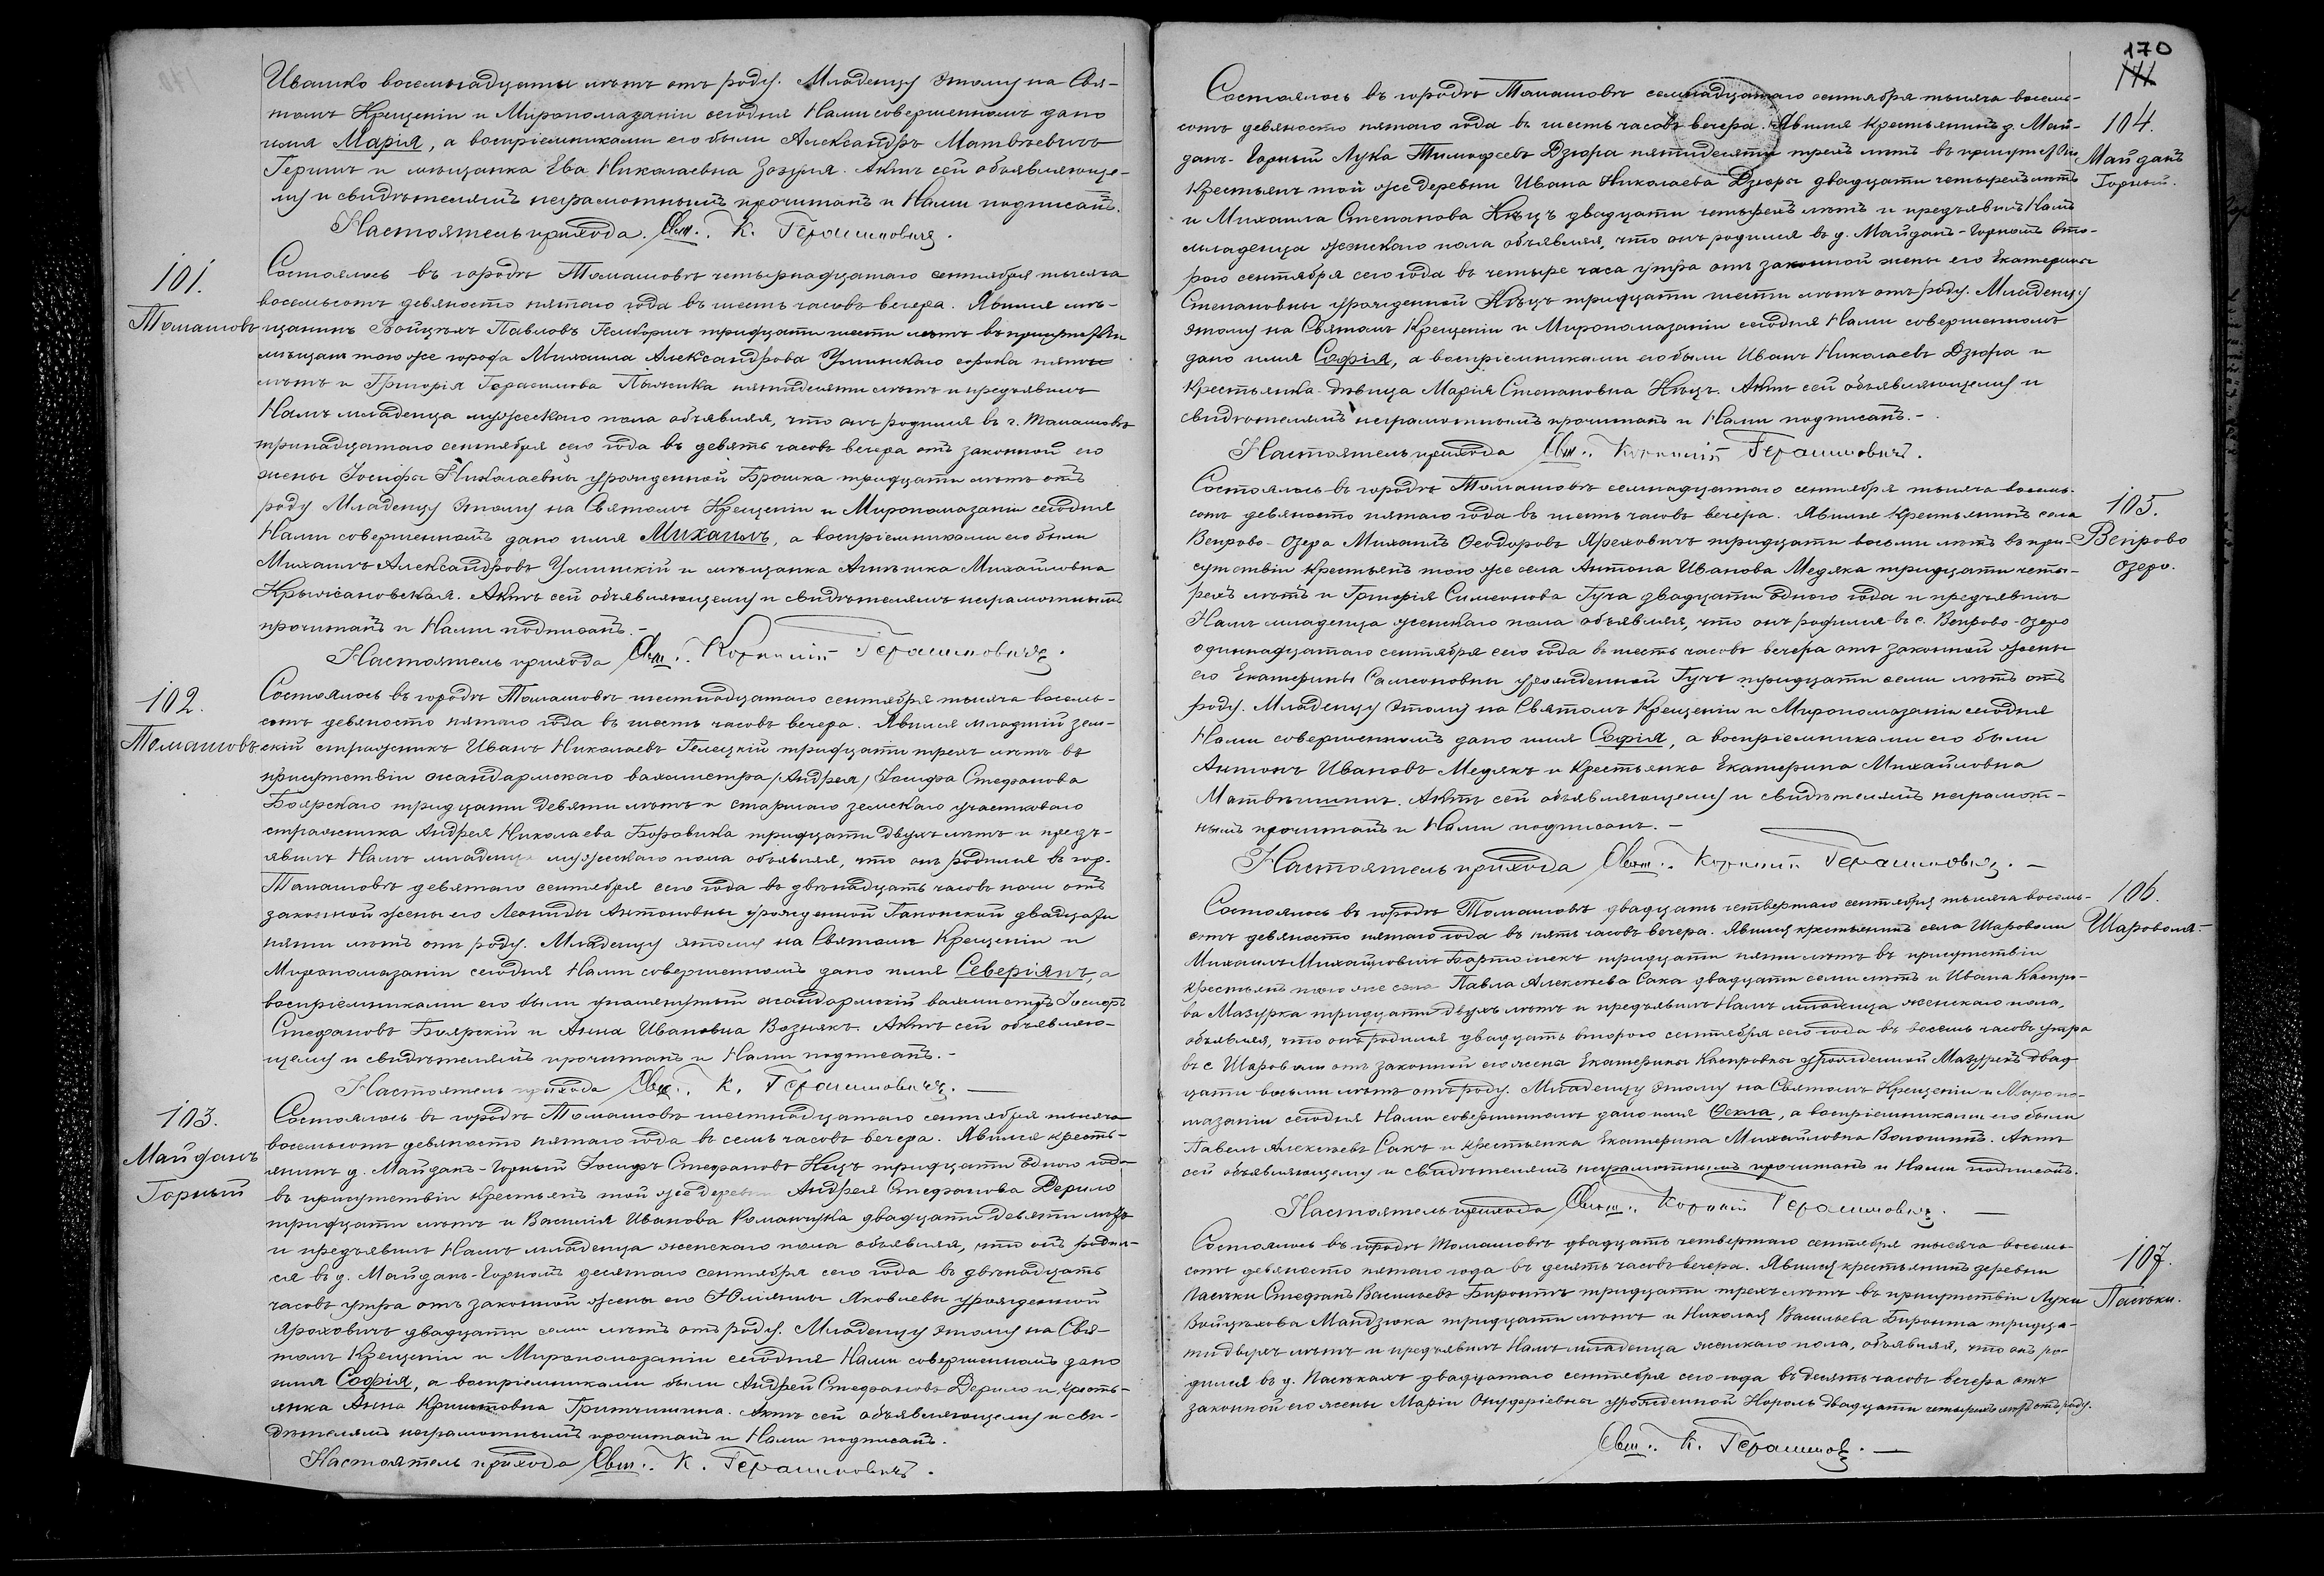 Ивашко восемьнадцати лѣтъ отъ роду. Младенцу этому на Свя-
томъ Крещеніи и Миропомазаніи сегодня Нами совершенномъ дано
имя Марія, а воспріемниками его были Александръ Матвѣевичъ
и мѣщанка Ева Николаевна. Актъ сей объявляюще-
му и свидѣтелямъ неграмотнымъ прочитанъ и Нами подписанъ.
Настоятель прихода Свщ. К. Герасимовичъ.
101.
Томашовъ
Состоялось въ городѣ Томашовѣ четырнадцатаго сентября тысяча
восемьсотъ девяносто пятаго года въ шесть часовъ вечера. Явился мѣ-
щанинъ Войцѣхъ Павловъ тридцати шести лѣтъ въ присутствіи
мѣщанъ того же города Михаила Александрова Улинскаго сорока пяти
лѣтъ и Григорія Герасимова пятидесяти лѣтъ и предъявилъ
Намъ младенца мужескаго пола объявляя, что онъ родился въ г. Томашовѣ
тринадцатаго сентября сего года въ девять часовъ вечера отъ законной его
жены Іосифы Николаевны урожденной Брошка тридцати лѣтъ отъ
роду Младенцу этому на Святомъ Крещеніи и Миропомазаніи сегодня
Нами совершенномъ дано имя Михаилъ, а воспріемниками его были
Михаилъ Александровъ Улинскій и мѣщанка Агнѣшка Михайловна
Крыжановская. Актъ сей объявляющему и свидѣтелямъ неграмотнымъ
прочитанъ и Нами подписанъ.-
Настоятель прихода Свщ. Корнилій Герасимовичъ.
102.
Томашовъ
Состоялось въ городѣ Томашовѣ шестнадцатаго сентября тысяча восемь-
сотъ девяносто пятаго года въ шесть часовъ вечера. Явился младшій зем-
скій стражникъ Иванъ Николаевъ Гелецкій тридцати трехъ лѣтъ въ
присутствіи жандармскаго вахмистра (Андрея) Іосифа Стефанова
Боярскаго тридцати девяти лѣтъ и старшаго земскаго участковаго
стражника Андрея Николаева Боровика тридцати двухъ лѣтъ и предъ-
явилъ Намъ младенца мужескаго пола объявляя, что онъ родился въ гор.
Томашовѣ девятаго сентября сего года въ двѣнадцать часовъ ночи отъ
законной жены его Леониды Антоновны урожденной Гаконской двадцати
пяти лѣтъ отъ роду. Младенцу этому на Святомъ Крещеніи и
Миропомазаніи сегодня Нами совершенномъ дано имя Северіянъ, а
воспріемниками его были упомянутый жандармскій вахмистръ Іосифъ
Стефановъ Боярскій и Анна Ивановна Вознякъ. Актъ сей объявляю-
щему и свидѣтелямъ прочитанъ и Нами подписанъ.-
Настоятель прихода Свщ. К. Герасимовичъ.
103.
Майданъ
Горный
Состоялось въ городѣ Томашовѣ шестнадцатаго сентября тысяча
восемьсотъ девяносто пятаго года въ семь часовъ вечера. Явился кресть-
янинъ д. Майданъ-Горный Іосифъ Стефановъ Кицъ тридцати одного года
въ присутствіи крестьянъ той же деревни Андрея Стефанова Дерило
тридцати лѣтъ и Василія Иванова Романчука двадцати девяти лѣтъ
и предъявилъ Намъ младенца женскаго пола объявляя, что онъ родил-
ся въ д. Майданъ-Горномъ десятаго сентября сего года въ двѣнадцать
часовъ утра отъ законной жены его Юліянны Яковлевы урожденной
Яроховичъ двадцати семи лѣтъ отъ роду. Младенцу этому на Свя-
томъ Крещеніи и Миропомазаніи сегодня Нами совершенномъ дано
имя Софія, а воспріемниками были Андрей Стефановъ Дерило и кресть-
янка Анна. Актъ сей объявляющему и сви-
дѣтелямъ неграмотнымъ прочитанъ и Нами подписанъ.
Настоятель прихода Свщ. К. Герасимовичъ.
170
104.
Майданъ
Горный.
Состоялось въ городѣ Томашовѣ семнадцатаго сентября тысяча восемь-
сотъ девяносто пятаго года въ шесть часовъ вечера. Явился крестьянинъ д. Май-
данъ-Горный Лука Тимофеевъ Дзюра пятидесяти трехъ лѣтъ въ присутствіи
крестьянъ той же деревни Ивана Николаева Дзюры двадцати четырехъ лѣтъ
и Михаила Степанова Кѣцъ двадцати четырехъ лѣтъ и предъявилъ Намъ
младенца женскаго пола объявляя, что онъ родился въ д. Майданъ-Горномъ вто-
рого сентября сего года въ четыре часа утра отъ законной жены его Екатерины
Степановны урожденной Кѣцъ тридцати шести лѣтъ отъ роду. Младенцу
этому на Святомъ Крещеніи и Миропомазаніи сегодня Нами совершенномъ
дано имя Софія, а воспріемниками его были Иванъ Николаевъ Дзюра и
крестьянка-дѣвица Марія Степановна Кѣцъ. Актъ сей объявляющему и
свидѣтелямъ неграмотнымъ прочитанъ и Нами подписанъ.-
Настоятель прихода Свщ. Корнилій Герасимовичъ.
105.
Вепрово
озеро.
Состоялось въ городѣ Томашовѣ семнадцатаго сентября тысяча восемь-
сотъ девяносто пятаго года въ шесть часовъ вечера. Явился крестьянинъ села
Вепрово-Озера Михаилъ Ѳеодоровъ Яреховичъ тридцати восьми лѣтъ въ при-
сутствіи крестьянъ того же села Антона Иванова Медяка тридцати четы-
рехъ лѣтъ и Григорія Симеонова Гуча двадцати одного года и предъявилъ
Намъ младенца женскаго пола объявляя, что онъ родился въ с. Вепрово-озеро
одиннадцатаго сентября сего года въ шесть часовъ вечера отъ законной жены
его Екатерины Самсоновны урожденной Гучъ тридцати семи лѣтъ отъ
роду. Младенцу этому на Святомъ Крещеніи и Миропомазаніи сегодня
Нами совершенномъ дано имя Софія, а воспріемниками его были
Антонъ Ивановъ Медякъ и крестьянка Екатерина Михайловна
Матвѣишинъ. Актъ сей объявляющему и свидѣтелямъ неграмот-
нымъ прочитанъ и Нами подписанъ.-
Настоятель прихода Свщ. Корнилій Герасимовичъ.-
106.
Шароволя.
Состоялось въ городѣ Томашовѣ двадцать четвертаго сентября тысяча восемь-
сотъ девяносто пятаго года въ пять часовъ вечера. Явился крестьянинъ села Шароволи
Михаилъ Михайловичъ тридцати пяти лѣтъ въ присутствіи
крестьянъ того же села Павла Алексѣева Сака двадцати семи лѣтъ и Ивана Каспро-
ва Мазурка тридцати двухъ лѣтъ и предъявилъ Намъ младенца женскаго пола,
объявляя, что онъ родился двадцать второго сентября сего года въ восемь часовъ утра
въ с. Шароволи отъ законной его жены Екатерины Каспровны урожденной Мазурекъ двад-
цати восьми лѣтъ отъ роду. Младенцу этому на Святомъ Крещеніи и Миропо-
мазаніи сегодня Нами совершенномъ дано имя Ѳекла, а воспріемниками его были
Павелъ Алексѣевъ Сакъ и крестьянка Екатерина Михайловна Волошинъ. Актъ
сей объявляющему и свидѣтелямъ неграмотнымъ прочитанъ и Нами подписанъ.
Настоятель прихода Свщ. Корнилій Герасимовичъ.
107.
Пасѣки.
Состоялось въ городѣ Томашовѣ двадцать четвертаго сентября тысяча восемь-
сотъ девяносто пятаго года въ десять часовъ вечера. Явился крестьянинъ деревни
Пасѣки Стефанъ Васильевъ Биронтъ тридцати трехъ лѣтъ въ присутствіи Луки
Войцѣхова Мандзюка тридцати лѣтъ и Николая Васильева Биронта тридца-
ти двухъ лѣтъ и предъявилъ Намъ младенца женскаго пола, объявляя, что онъ ро-
дился въ д. Пасѣкахъ двадцатаго сентября сего года въ десять часовъ вечера отъ
законной его жены Маріи Онуфріевны урожденной Король двадцати четырехъ лѣтъ отъ роду.
Свщ. К. Герасимов.